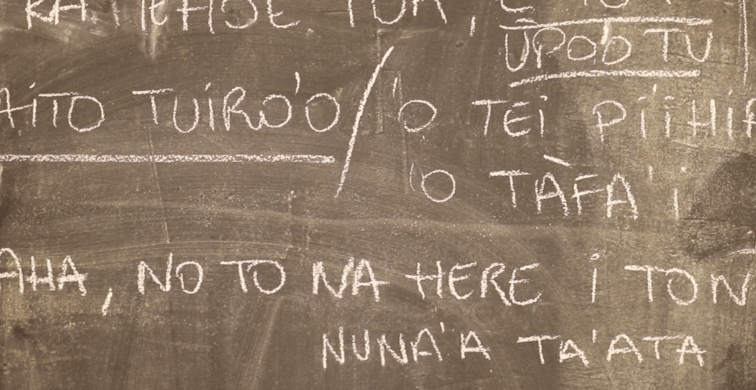 ŪPO'O TU
AITO TUIRO'O / 'O TEI PI'IHI
'O TĀFA'I
AHA, NO TO NA HERE I TON
NUNA'A TA'ATA